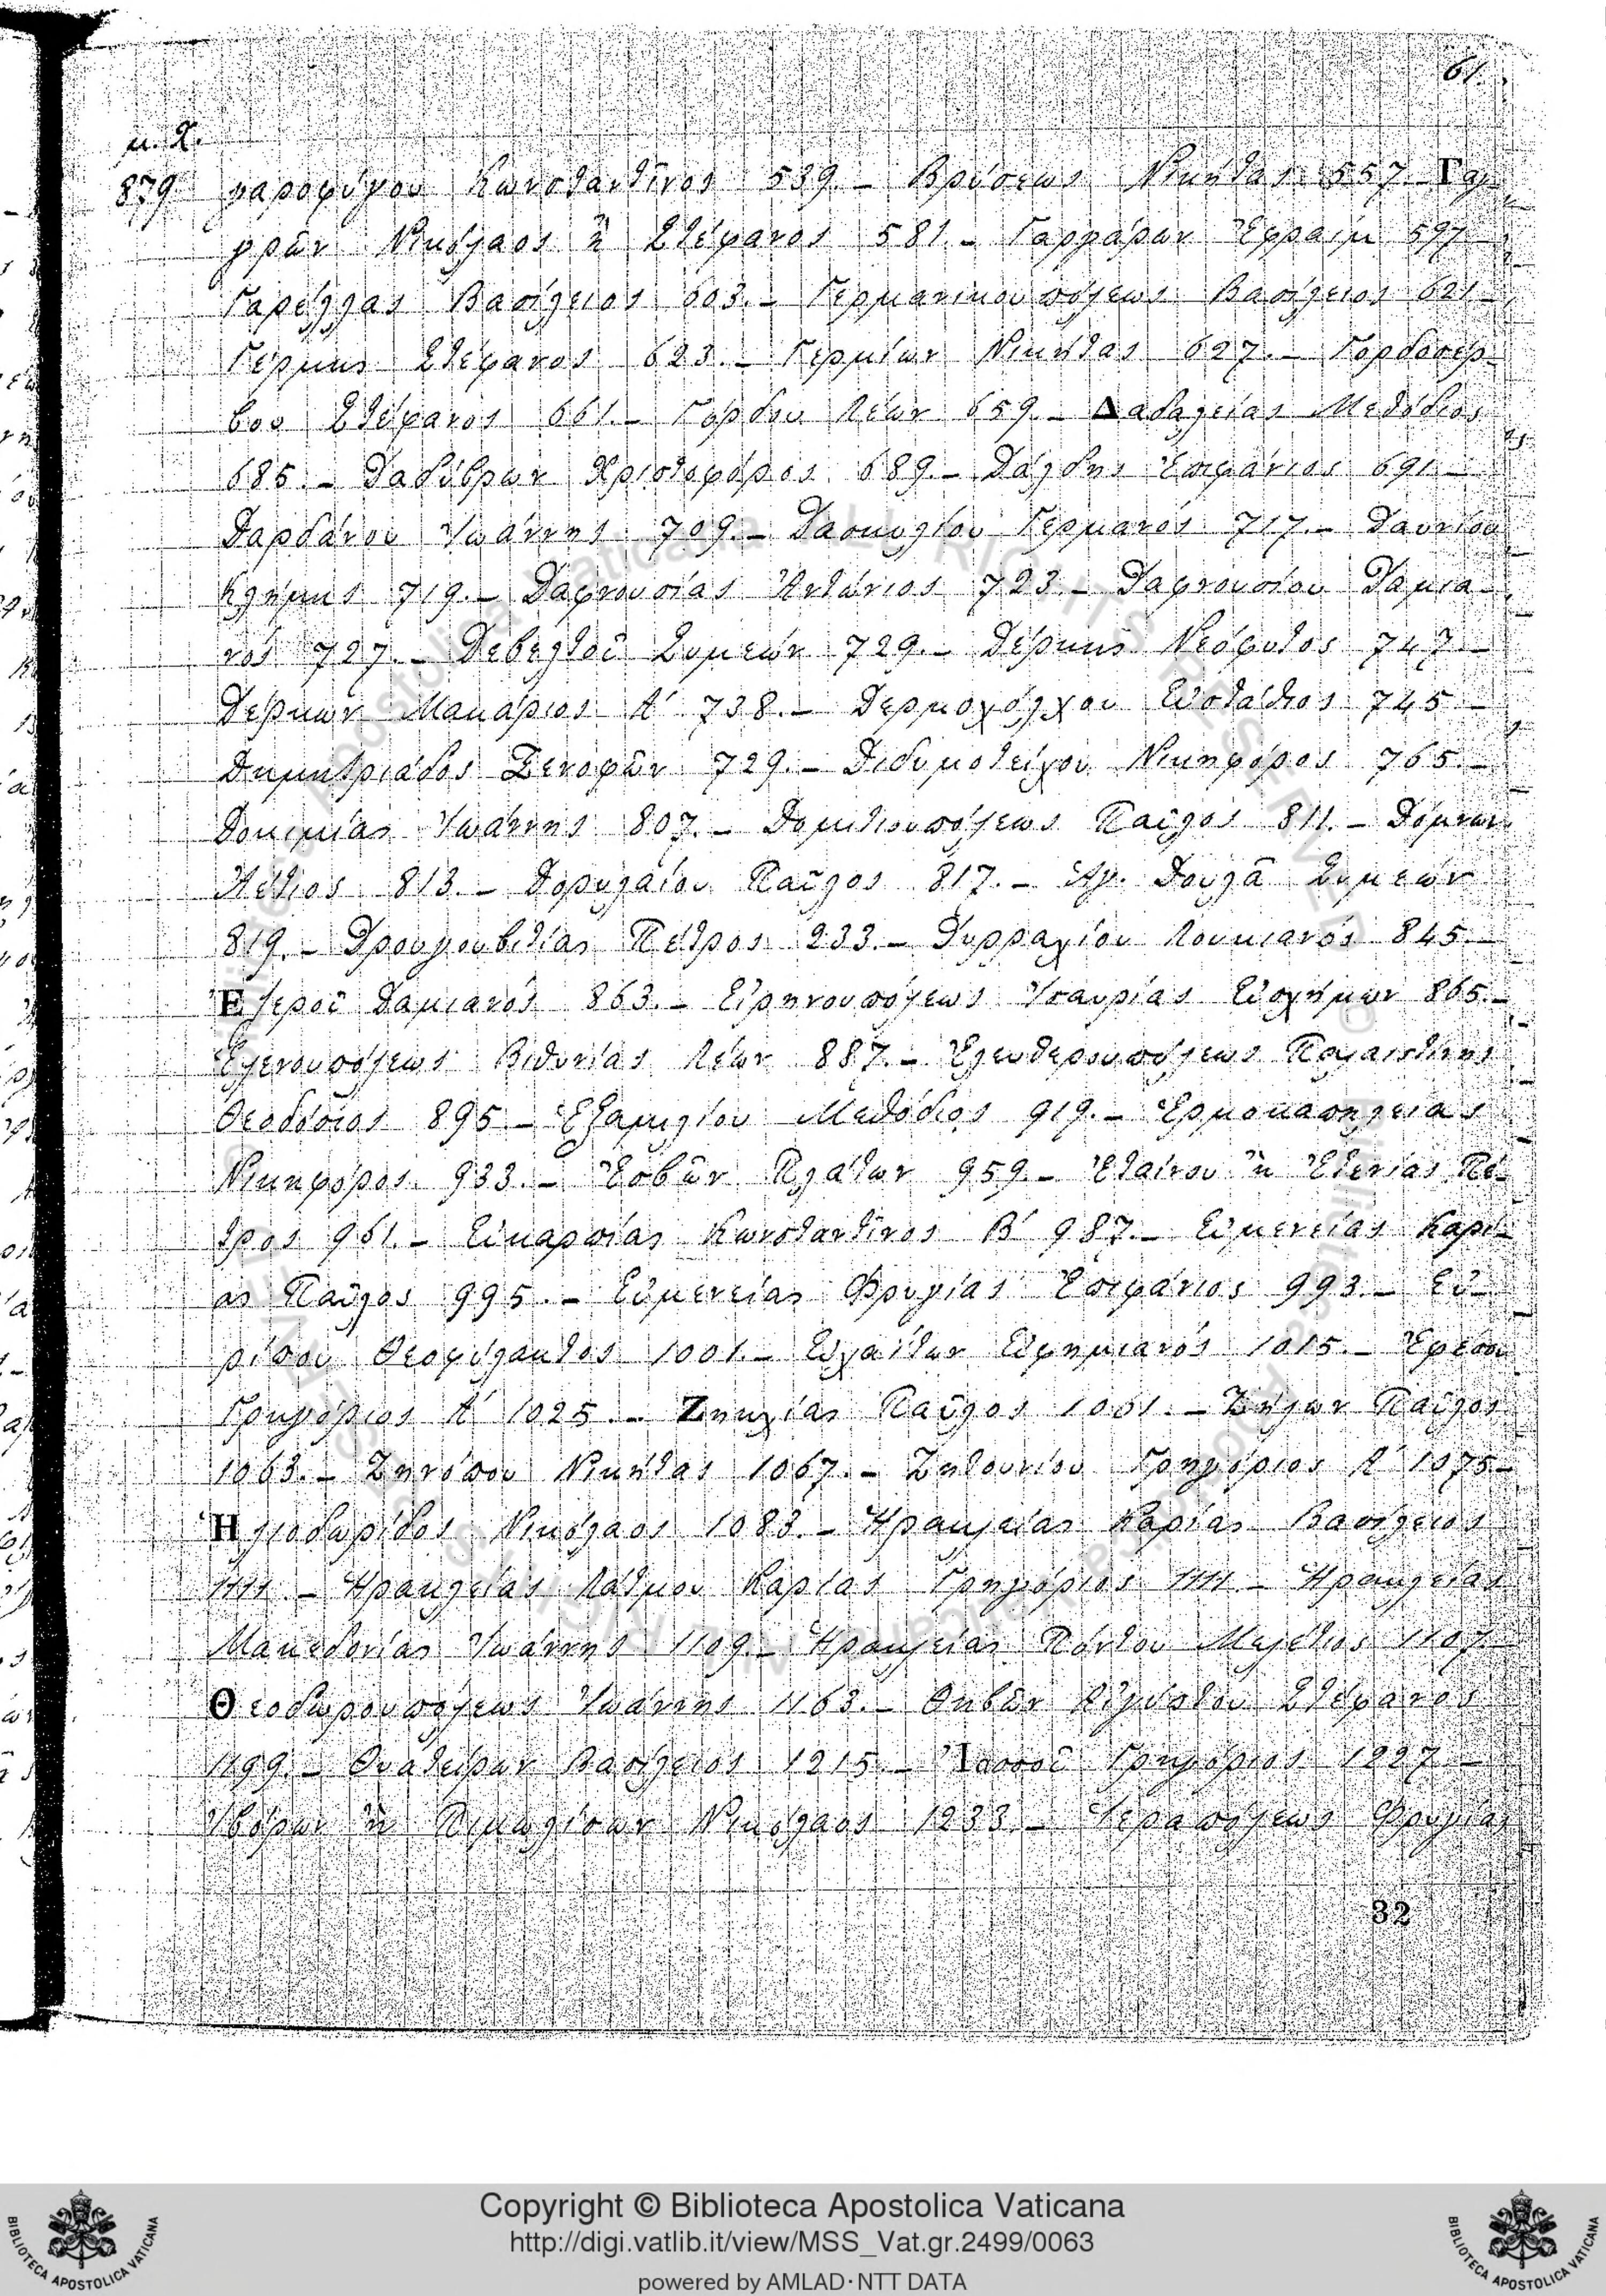 61.
μ. Χ.
879 γαροφύγου Κωνσταντῖνος 539.– Βρύσεως Νικήτας 557.– Γαγ-
γρῶν Νικόλαος ἢ Στέφανος 581.– Γαργάρων Ἐφραὶμ 597.–
Γαρέλλας Βασίλειος 603.– Γερμανικουπόλεως Βασίλειος 621.–
Γέρμης Στέφανος 623.– Γερμίων Νικήτας 627.– Γορδοσέρ-
βου Στέφανος 661.– Γόρδου Λέων 659.– Δαδαλείας Μεθόδιος
685.– Δαδύβρων Χριστοφόρος 689.– Δάλδης Ἐπιφάνιος 691.–
Δαρδάνου Ἰωάννης 709.– Δασκυλίου Γερμανός 717.– Δαυνίου
Κλήμης 719.– Δαφνουσίας Ἀντώνιος 723.– Δαφνουσίου Δαμια-
νός 727.– Δεβελτοῦ Συμεών 729.– Δέρκης Νεόφυτος 747.–
Δερκῶν Μακάριος Α΄ 738.– Δερμοχόλχου Εὐστάθιος 745.–
Δημητριάδος Ξενοφῶν 729.– Διδυμοτείχου Νικηφόρος 765.–
Δοκιμίας Ἰωάννης 807.– Δομιτιουπόλεως Παῦλος 811.– Δόμνων
Ἀέτιος 813.– Δορυλαίου Παῦλος 817.– Ἁγ. Δουλᾶ Συμεών
819.– Δρουγουβιτίας Πέτρος 233.– Δυρραχίου Λουκιανός 845.–
Ἐζεροῦ Δαμιανός 863.– Εἰρηνουπόλεως Ἰσαυρίας Εὐσχήμων 865.–
Ἑλενουπόλεως Βιθυνίας Λέων 887.– Ἐλευθερουπόλεως Παλαιστίνης
Θεοδόσιος 895.– Ἑξαμιλίου Μεθόδιος 919.– Ἑρμοκαπηλείας
Νικηφόρος 933.– Ἐσβῶν Πλάτων 959.– Ἐταίνου ἢ Ἐτενίας Πέ-
τρος 961.– Εὐκαρπίας Κωνσταντῖνος Β΄ 987.– Εὐμενείας Καρί-
ας Παῦλος 995.– Εὐμενείας Φρυγίας Ἐπιφάνιος 993.– Εὐ-
ρίπου Θεοφύλακτος 1001.– Εὐχαΐτων Εὐφημιανός 1015.– Ἐφέσου
Γρηγόριος Α΄ 1025.– Ζηκχίας Παῦλος 1061.– Ζήλων Παῦλος
1063.– Ζηνόπου Νικήτας 1067.– Ζητουνίου Γρηγόριος Α΄ 1075.–
Ἡλιοδωρίδος Νικόλαος 1083.– Ἡρακλείας Καρίας Βασίλειος
1111.– Ἡρακλείας Λάτμου Καρίας Γρηγόριος 1111.– Ἡρακλείας
Μακεδονίας Ἰωάννης 1109.– Ἡρακλείας Πόντου Μελέτιος 1107.–
Θεοδωρουπόλεως Ἰωάννης 1163.– Θηβῶν Αἰγύπτου Στέφανος
1199.– Θυατείρων Βασίλειος 1215.– Ἰασσοῦ Γρηγόριος 1227.–
Ἰβόρων ἢ Πιμωλίσων Νικόλαος 1233.– Ἱεραπόλεως Φρυγίας
32
Copyright © Biblioteca Apostolica Vaticana
http://digi.vatlib.it/view/MSS_Vat.gr.2499/0063
powered by AMLAD·NTT DATA
BIBLIOTECA APOSTOLICA VATICANA
BIBLIOTECA APOSTOLICA VATICANA